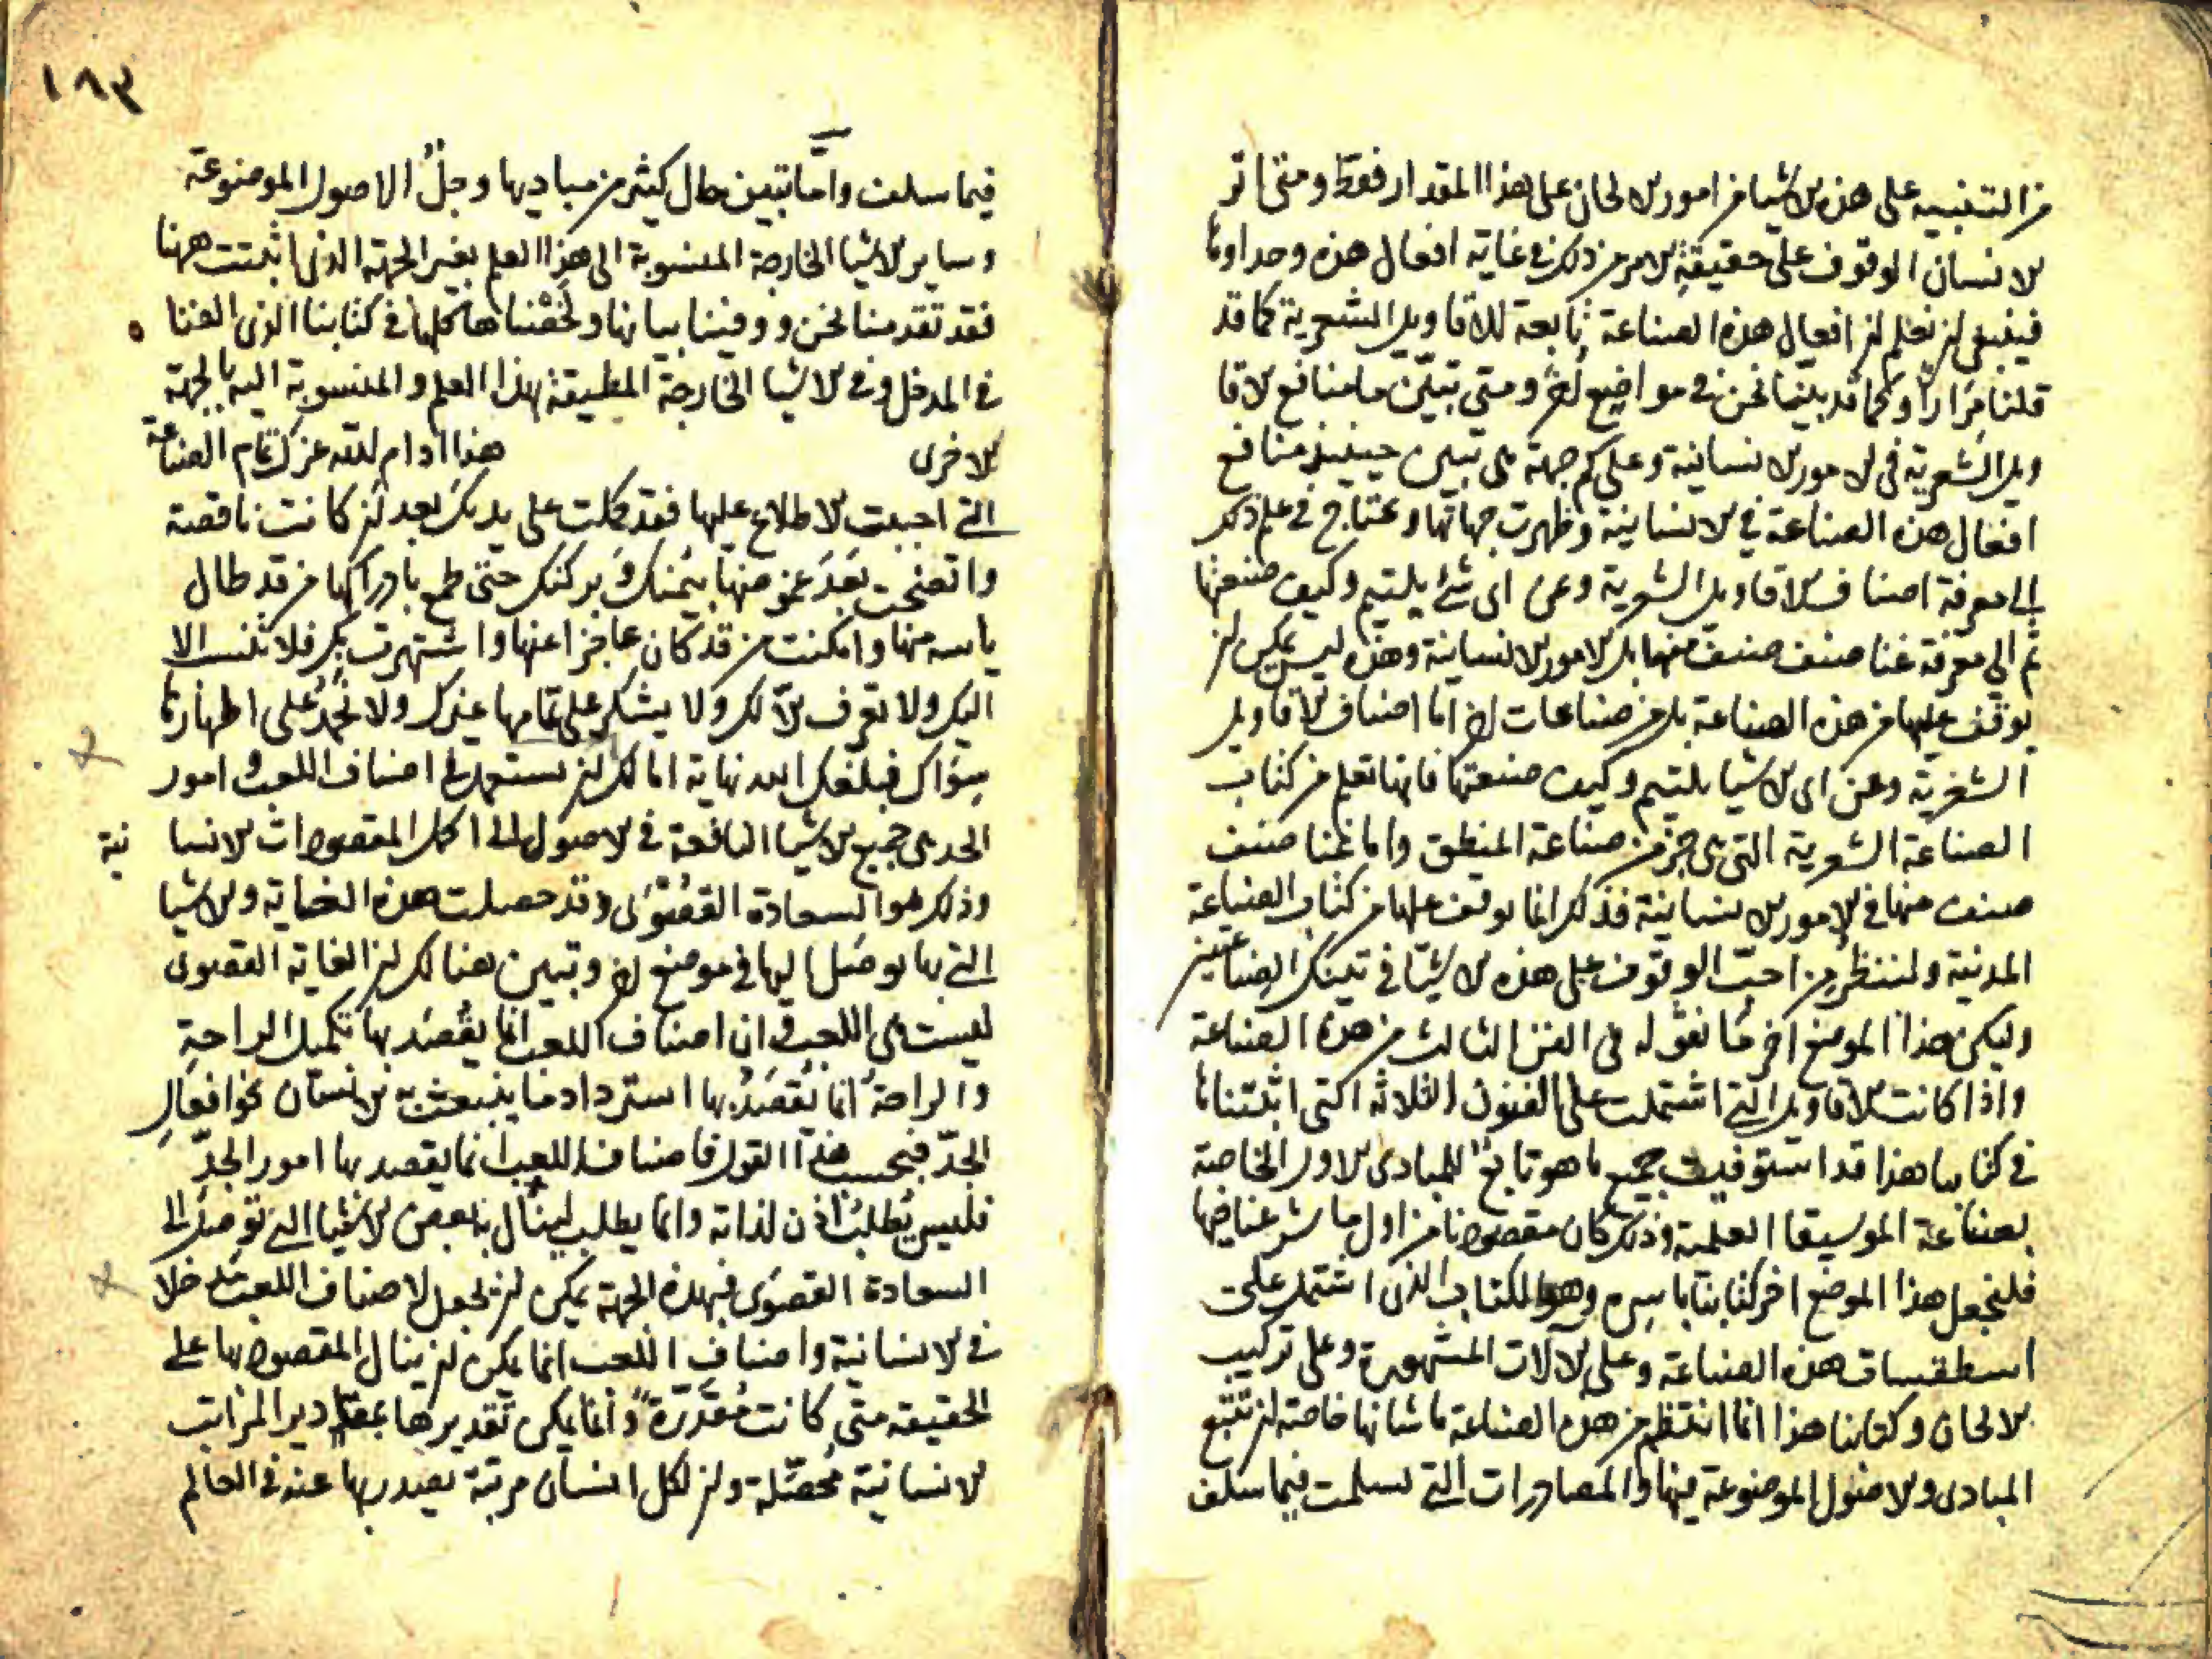 من التنبيه على هذه الاشيا من امور الالحان على هذا المقدار فقط ومتى اثر
الانسان الوقوف على حقيقة الامر من ذلك في غاية افعال هذه وحدا وما
فينبغى ان نعلم ان افعال هذه الصناعة تابعة للاقاويل الشعرية كما قد
قلنا مرارا وكما قد بينا نحن في مواضع اخر ومتى تبين ما منافع الاقا
ويل الشعرية في الامور الانسانية وعلى كم جهة هى تبين حينيذ منافع
افعال هذه الصناعة في الانسانية وظهرت جهاتها ونحتاج في علم ذلك
الى معرفة اصناف الاقاويل الشعرية وعن اى شئ يلتيم وكيف صنعتها
ثم الى معرفة غنا صنف صنف منها بل الامور الانسانية وهذه ليس يمكن ان
يوقف عليها من هذه الصناعة بل من صناعات اخر اما اصناف الاقاويل
الشعرية وعن اى الاشيا يلتيم وكيف صنعتها فانها تعلم من كتاب
الصناعة الشعرية التى هى جز من صناعة المنطق واما غنا صنف
صنف منها في الامور الانسانية فذلك انما يوقف عليها من كتاب الصناعة
المدنية ولننظر من احب الوقوف على هذه الاشيا في تينك الصناعتين
وليكن هذا الموضع اخر ما نقوله في الفن الثالث من هذه الصناعة
واذا كانت الاقاويل التى اشتملت على الفنون الثلاثة التى اثبتناها
في كتابنا هذا قد استوفيت جميع ما هو تابع للمبادى الاول الخاصة
بصناعة الموسيقا العلمية وذلك كان مقصودنا من اول ما شرعنا فيها
فلنجعل هذا الموضع اخر كتابنا باسره وهو الكتاب الذى اشتمل على
اسطقسات هذه الصناعة وعلى الآلات المشهورة وعلى تركيب
الالحان وكتابنا هذا انما انتظم من هذه الصناعة ما شانها خاصة ان تتبع
المبادى والاصول الموضوعة فيها والمصادرات التى تسلمت فيما سلف
١٨٣
فيما سلف واما تبين حال كثير من مباديها وجل الاصول الموضوعة
وساير الاشيا الخارجة المنسوبة الى هذا العلم بغير الجهة الذى اثبتت ههنا
فقد تقدمنا نحن ووفينا بيانها ولخصناها كلها في كتابنا الذى الفنا
في المدخل وفي الاشيا الخارجة المطيفة بهذا العلم والمنسوبة اليه بالجهة
الاخرى هذا ادام الله عزك تمام الصناعة
التى احببت الاطلاع عليها فقد كملت على يديك بعد ان كانت ناقصة
واتضحت بعد غموضها بيمنك وبركتك حتى طمع بادراكها من قد طال
ياسه منها وامكنت من قد كان عاجزا عنها واشتهرت بك فلا تنسب الا
اليك ولا تعرف الا لك ولا يشكر على تمامها غيرك ولا تحمد على اظهارها
سواك فبلغك الله نهاية امالك ان تستعمل في اصناف اللعب وامور
الجد هى جميع الاشيا النافعة في الاصول الى اكمل المقصودات الانسا نية
وذلك هو السعادة القصوى وقد حصلت هذه الغاية والاشيا
التى بها يوصل اليها في موضع اخر وتبين هنالك ان الغاية القصوى
ليست هى اللعب وان اصناف اللعب انما يقصد بها تكميل الراحة
والراحة انما يقصد بها استرداد ما ينبعث به الانسان نحو افعال
الجد فبحسب هذا القول فاصناف اللعب انما يقصد بها امور الجد
فليس يطلب اذن لذاته وانما يطلب لينال به بعض الاشيا التى توصل الى
السعادة القصوى فبهذه الجهة يمكن ان نجعل لاصناف اللعب مدخلا
في الانسانية واصناف اللعب انما يمكن ان ينال المقصود بها على
الحقيقة متى كانت مقدرة وانما يمكن تقديرها بمقادير المراتب
الانسانية محصلة وان لكل انسان مرتبة يصدر بها عنه في العالم